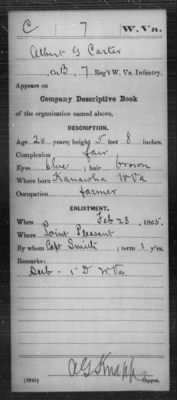 C 7 W. Va.
Albert G Carter
, Co. B, 7 Reg't W. Va. Infantry.
Appears on
Company Descriptive Book
of the organization named above.
DESCRIPTION.
Age 20 years; height 5 feet 8 inches.
Complexion fair
Eyes blue; hair brown
Where born Kanawha WVa
Occupation farmer
ENLISTMENT.
When Feb 28, 1865.
Where Point Pleasant
By whom Capt Smith; term 1 y'rs.
Remarks:
Sub - 1 D WVa
A G Knapp
Copyist.